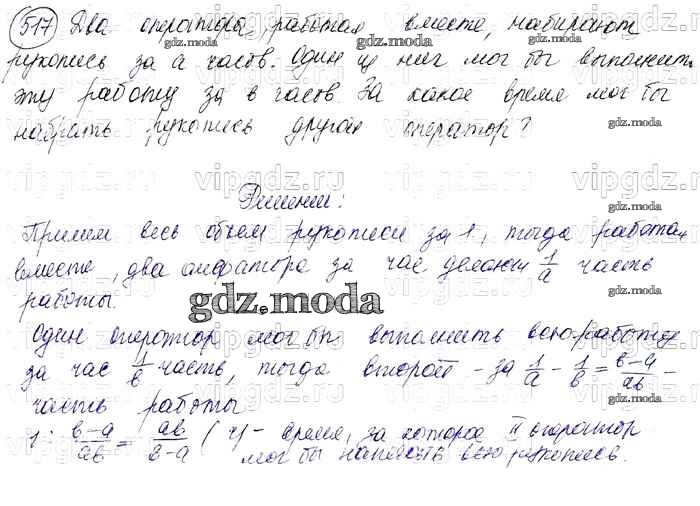 517 Два оператора, работая вместе, набирают
рукопись за а часов. Один из них мог бы выполнить
эту работу за в часов. За какое время мог бы
набрать рукопись другой оператор?
Решение:
Примем весь объем рукописи за 1, тогда работая
вместе, два оператора за час делают 1/a часть
работы.
Один оператор мог бы выполнить всю работу
за час 1/в часть, тогда второй - за 1/a - 1/в = в-а/ав -
часть работы
1 : в-а/ав = ав/в-а (ч) - время, за которое II оператор
мог бы написать всю рукопись.
gdz.moda
gdz.moda
gdz.moda
gdz.moda
gdz.moda
vipgdz.ru